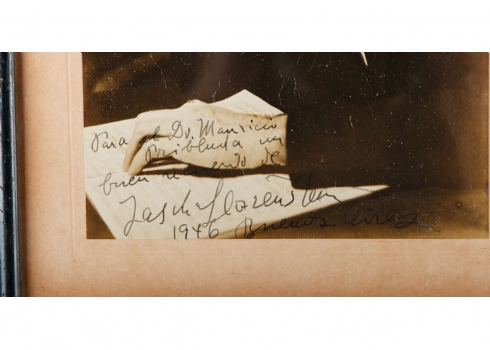 Para el Dr. Mauricio
un
buen recuerdo de
Jascha
1946 Buenos Aires